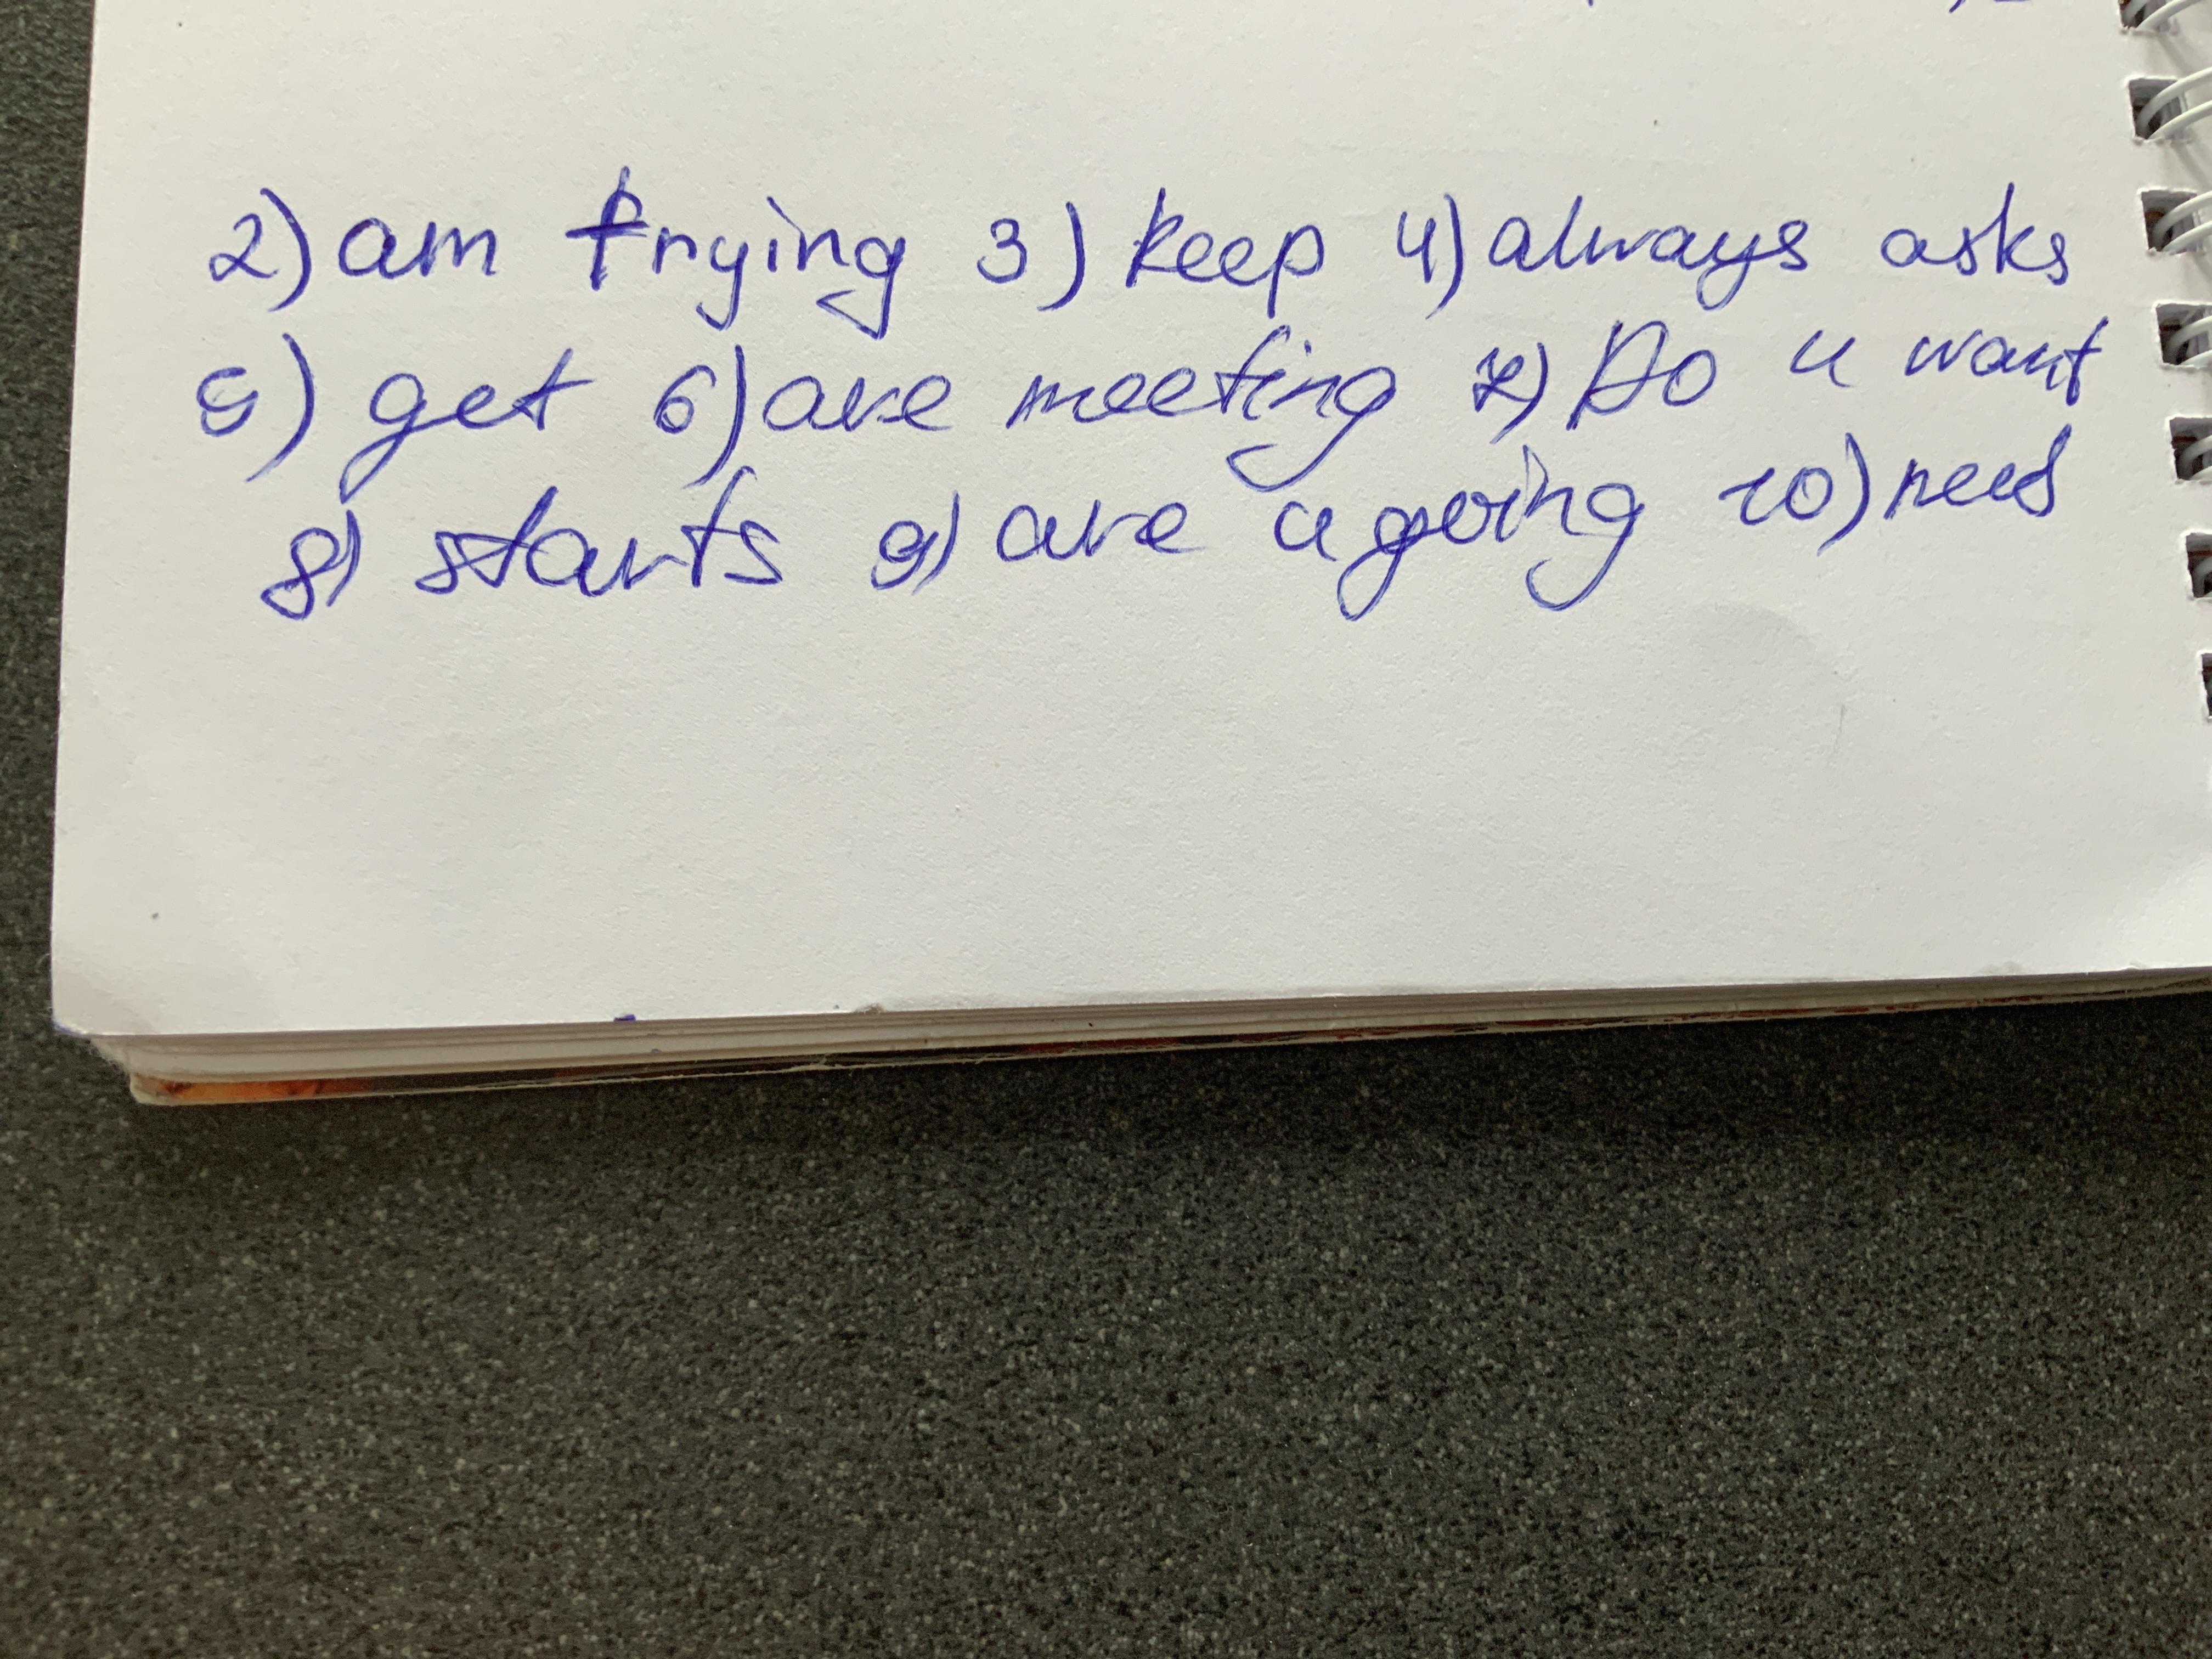 2) am trying 3) keep 4) always asks
5) get 6) are meeting 7) Do u want
8) starts 9) are u going 10) need